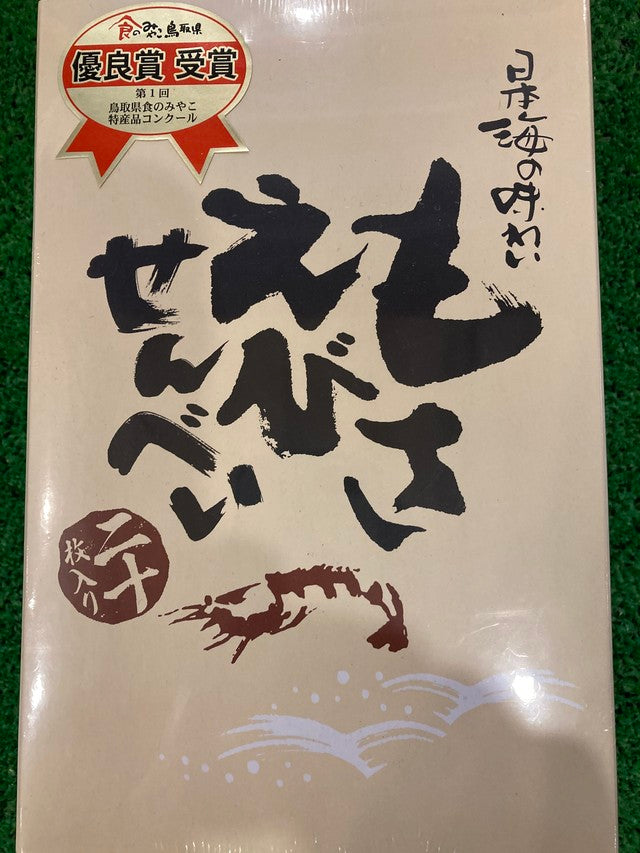 食のみやこ鳥取県
優良賞 受賞
第1回
鳥取県食のみやこ
特産品コンクール
日本海の味わい
もさ
えび
せんべい
二十
枚入り